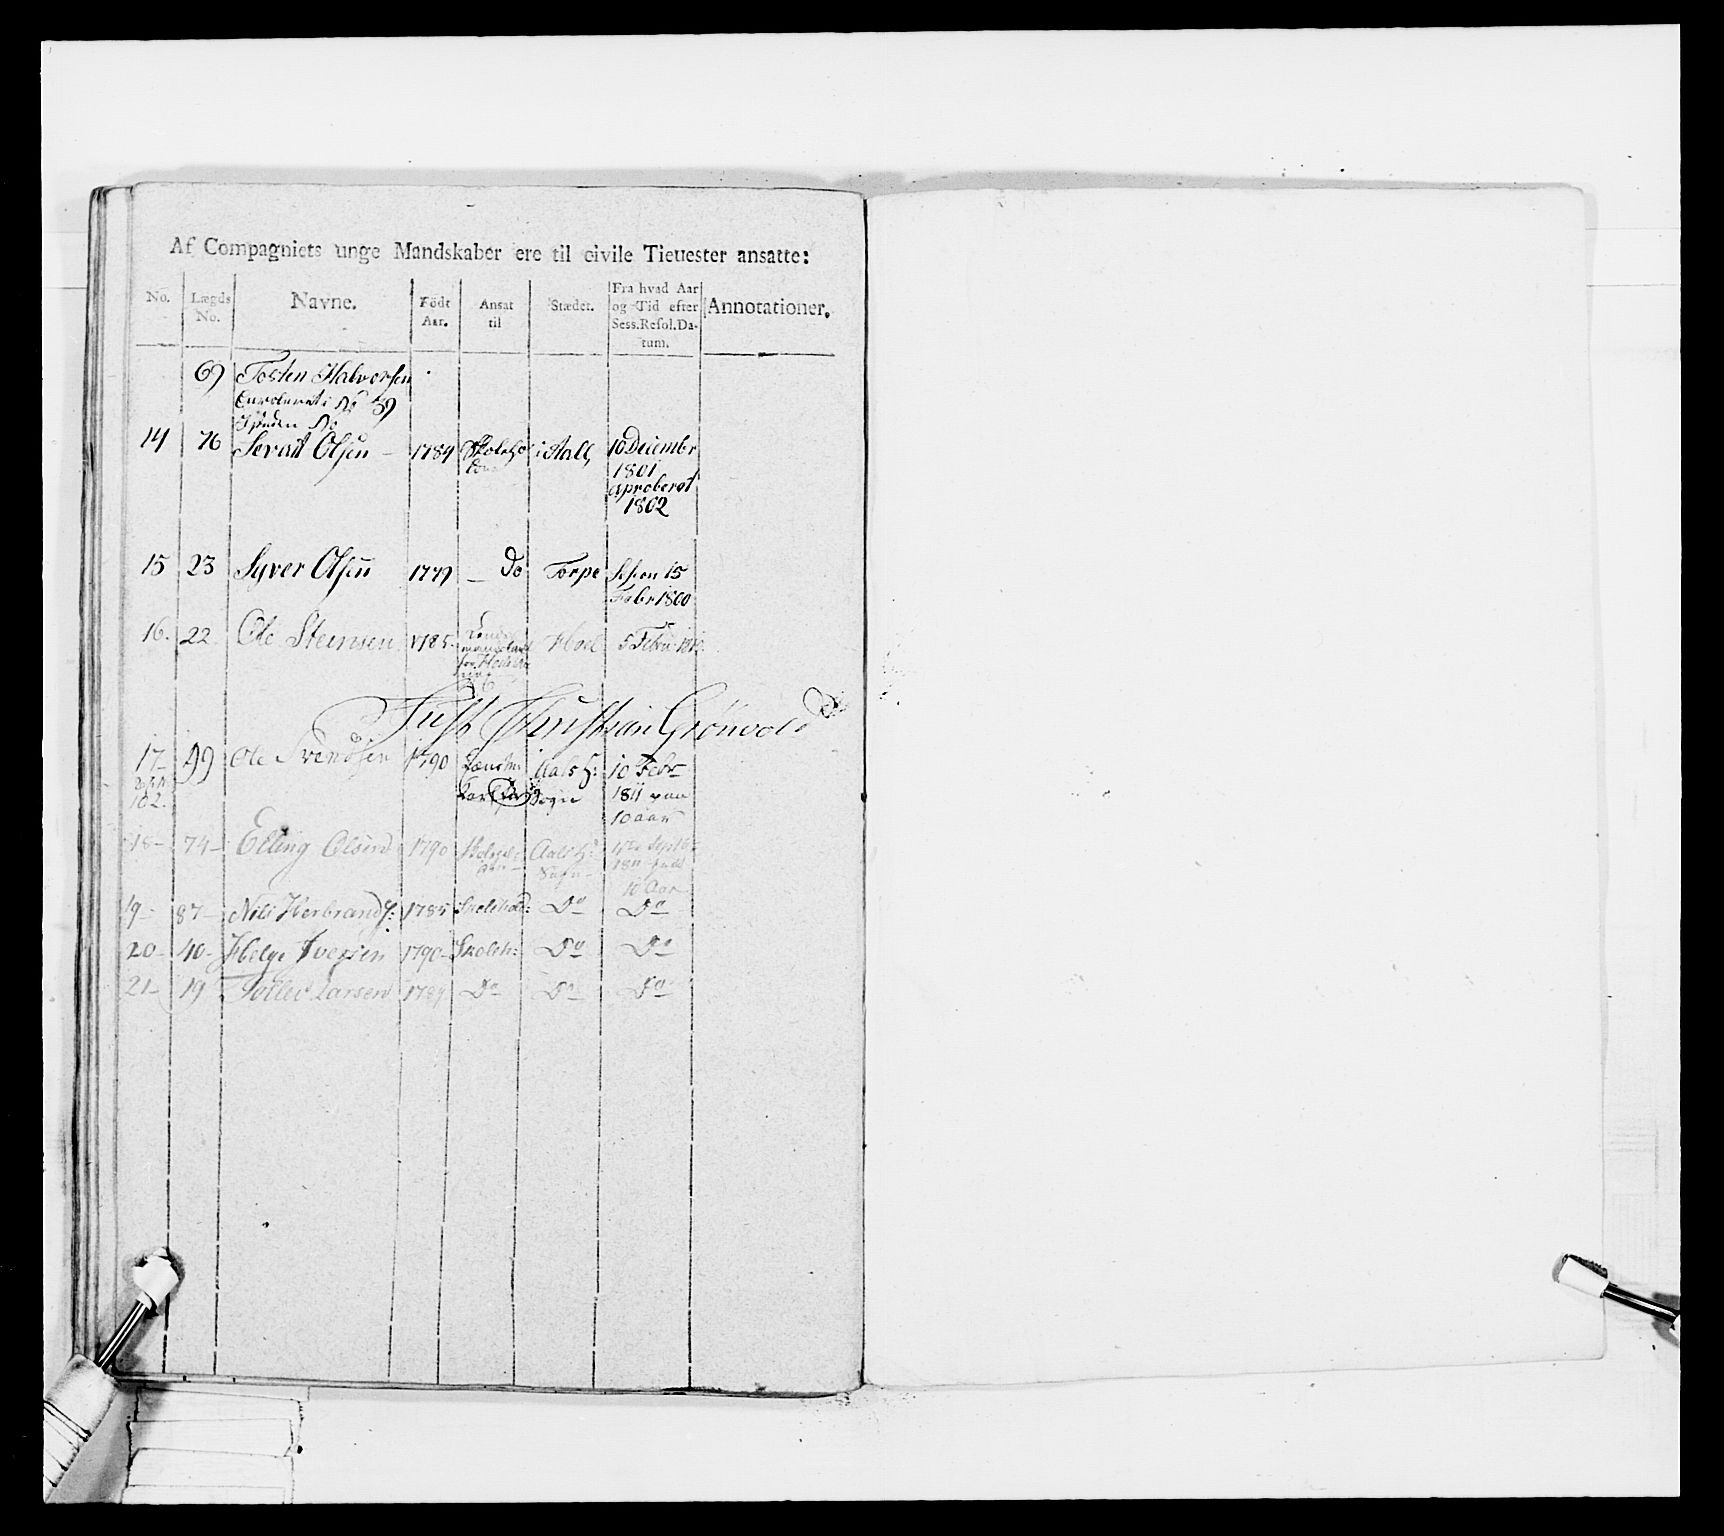 Af Compagniets unge Mandskaber ere til civile Tieuester ansatte:
No. Lægds No. Navne. Födt Aar. Ansat til Stædet. Fra hvad Aar og Tid efter Sess. Resol. Datum. Annotationer.
69 Tosten Halvorsen
59
14 76 Olsen 1784 i Aall 10 December
1801
aproberet
1802
15 23 Syver Olsen 1779 – Do Torpe Session 15
Febr 1800
16. 22 Ole Steensen 1785 Hoel 5 Febru
Just Christian Grönvold
17 99 Ole Svendsen 1790 Aals H: 10 Febr
102. Sogn 1811 paa
10 aar
18 – 74 – Elling Olsen 1790 Aals H: Septbr
Sogn – 1811 paa
10 Aar
19 – 87 – Nils Herbrands: 1785 Skolehold: Do Do
20 – 40 – Helge Iversen 1790 – Skoleh: Do Do
21 – 19 Tollev Larsen 1789 Do Do Do